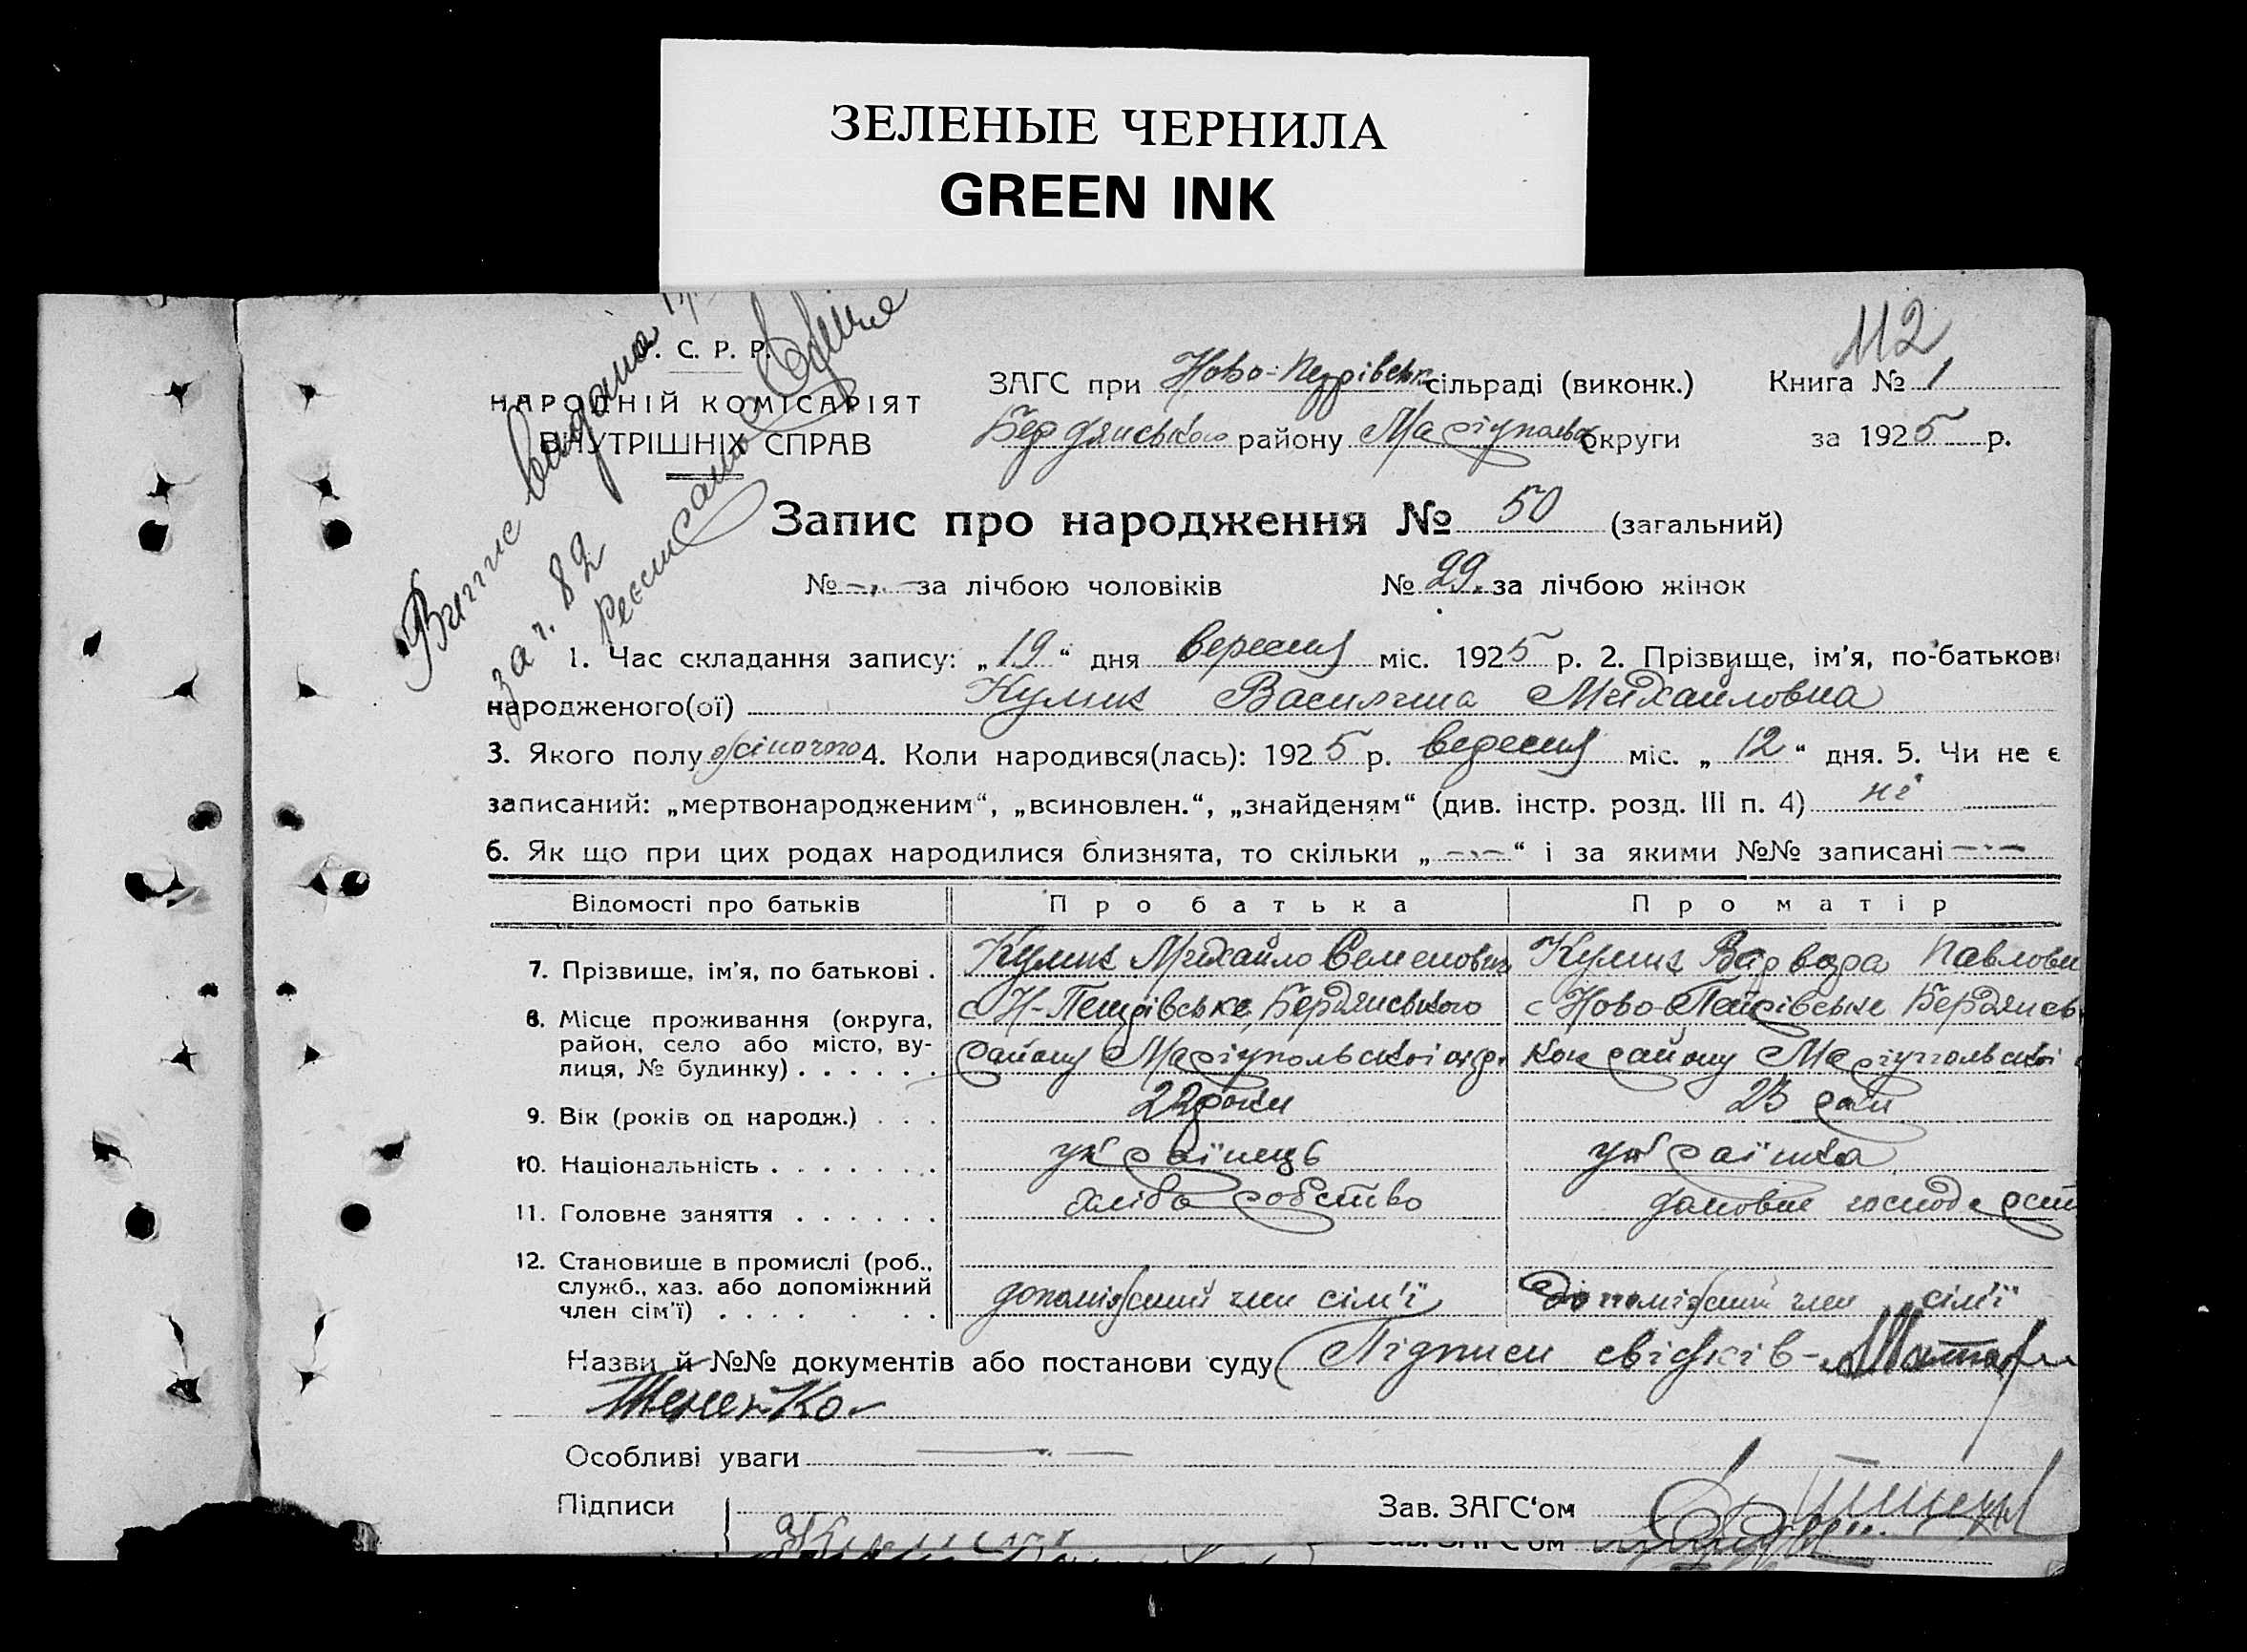 ЗЕЛЕНЫЕ ЧЕРНИЛА
GREEN INK
112
. С. Р. Р.
НАРОДНІЙ КОМІСАРІЯТ
ВНУТРІШНІХ СПРАВ
Випис видано
за ч. 82
ЗАГС при Ново-Петрівськ сільраді (виконк.) Книга № 1
Бердянського району Маріупольс округи за 1925 р.
Запис про народження № 50 (загальний)
№ -"- за лічбою чоловіків № 29. за лічбою жінок
1. Час складання запису: „19“ дня вересня міс. 1925 р. 2. Прізвище, ім’я, по-батькові
народженого(ої) Кулик Василина Михайловна
3. Якого полу жіночого 4. Коли народився(лась): 1925 р. вересня міс. „12“ дня. 5. Чи не є
записаний: „мертвонародженим“, „всиновлен.“, „знайденям“ (див. інстр. розд. III п. 4) ні
6. Як що при цих родах народилися близнята, то скільки „-·-“ і за якими №№ записані -·-
Відомості про батьків Про батька Про матір
7. Прізвище, ім’я, по батькові . Кулик Михайло Семенович Кулик Варвара Павловн
8. Місце проживання (округа, с Н-Петрівське, Бердянського с Ново-Петрівське Бердянсь
район, село або місто, ву-
лиця, № будинку) . . . . . . району Маріупольської окр. кого району Маріупольської
9. Вік (років од народж.) . . . 22 роки 23 роки
10. Національність . . . . . . . українець українка
11. Головне заняття . . . . . . хліборобство домовне господарст
12. Становище в промислі (роб.,
служб., хаз. або допоміжний
член сім’ї) . . . . . . . допоміжний член сім’ї допоміжний член сім’ї
Назви й №№ документів або постанови суду Підписи свідків-
Особливі уваги
Підписи Зав. ЗАГС‘ом
Зав. ЗАГС‘ом